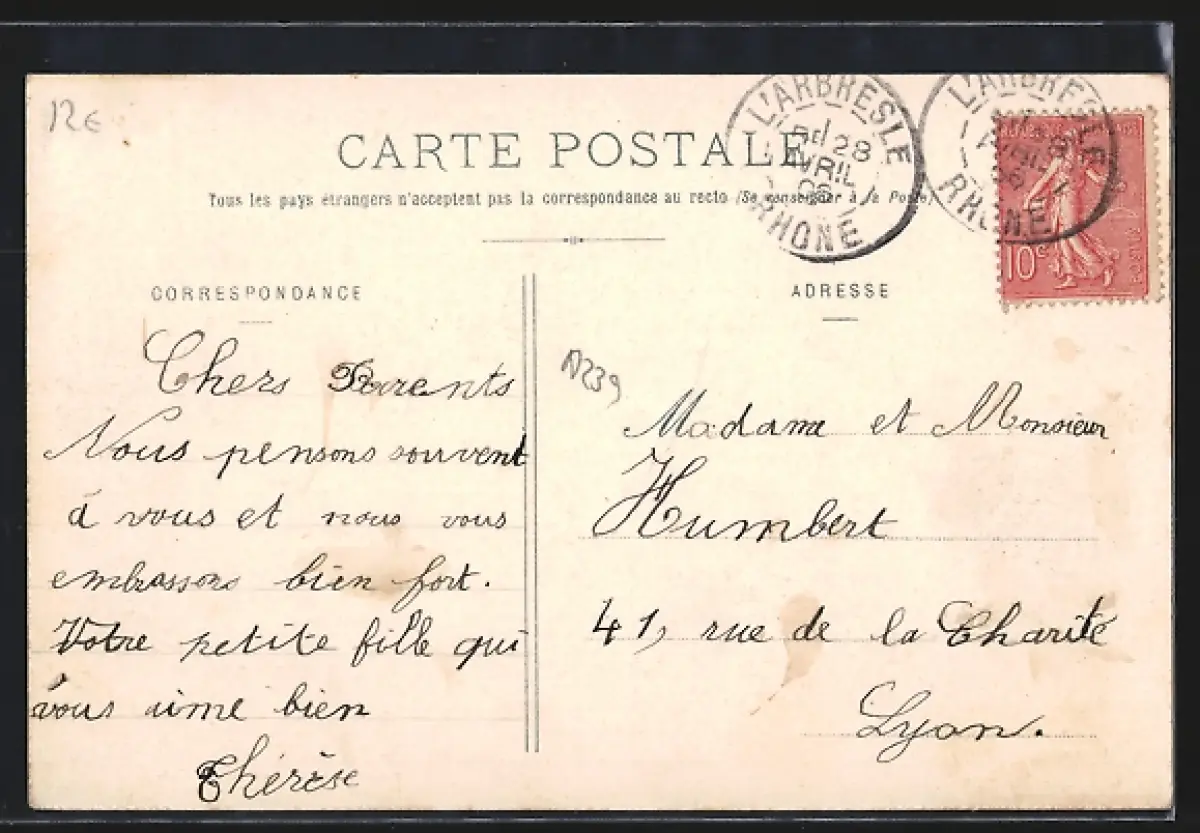 12€
CARTE POSTALE
Tous les pays étrangers n'acceptent pas la correspondance au recto (Se renseigner à la Poste)
L'ARBRESLE
28
AVRIL
06
RHONE
L'ARBRESLE
RHONE
10c
CORRESPONDANCE
Chers Parents
Nous pensons souvent
à vous et nous vous
embrassons bien fort.
Votre petite fille qui
vous aime bien
Thérèse
ADRESSE
N239
Madame et Monsieur
Humbert
41, rue de la Charité
Lyon.